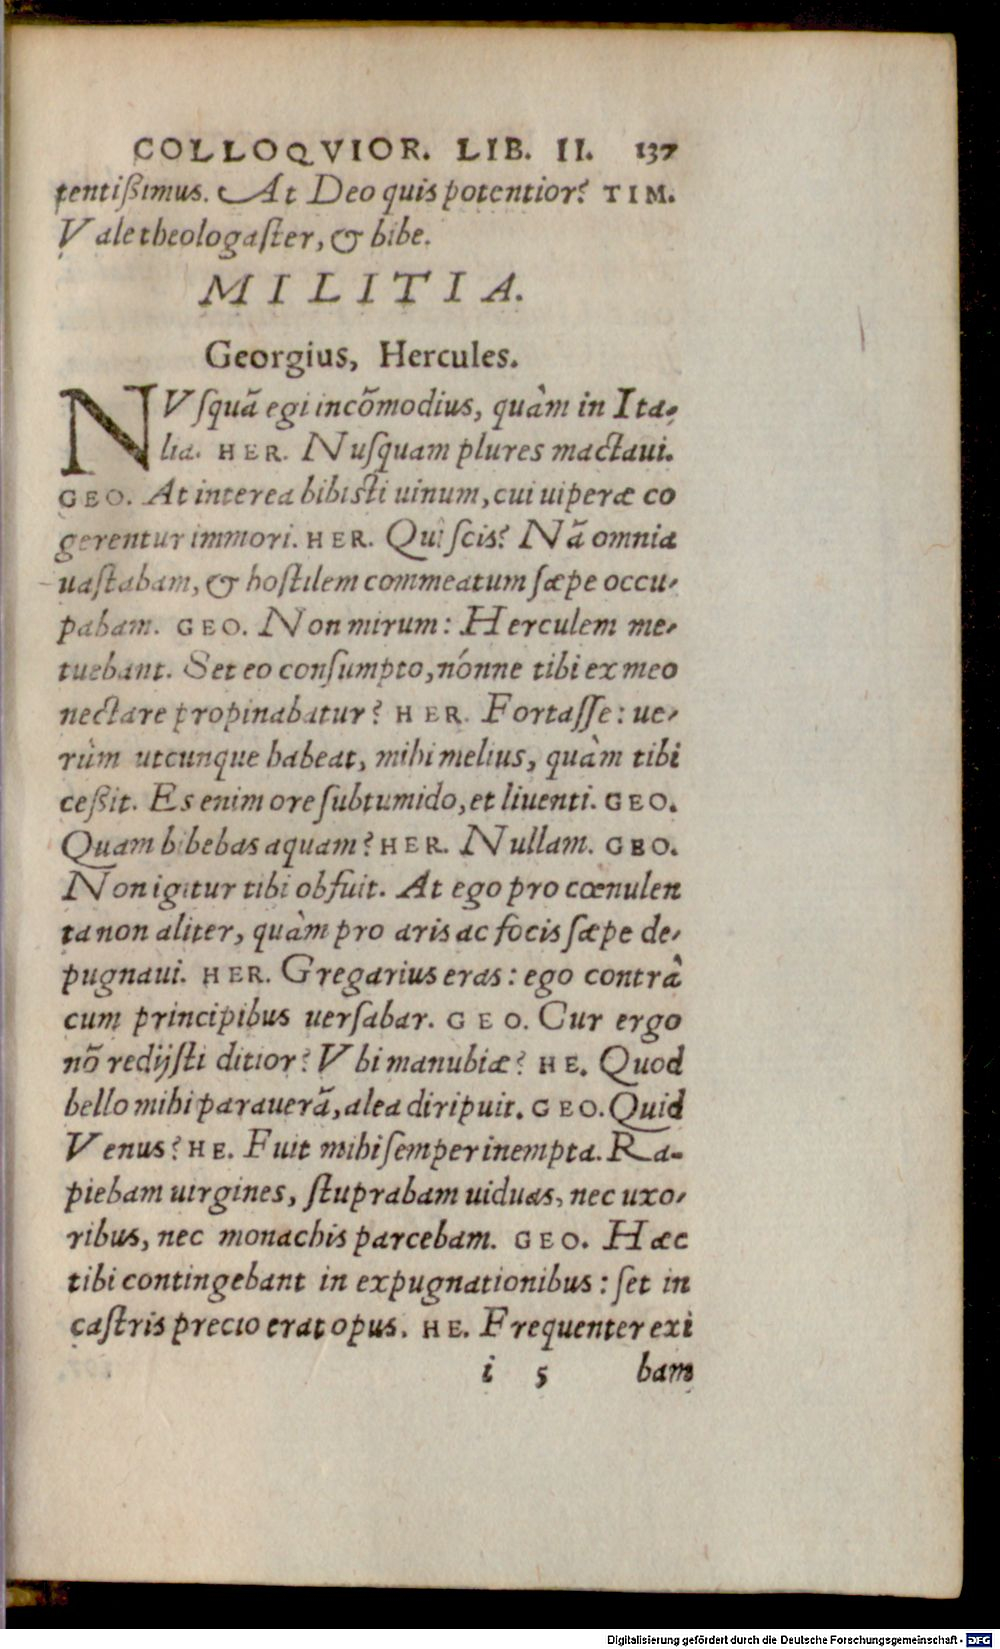 COLLOQVIOR. LIB. II. 137
tentißimus. At Deo quis potentior? TIM.
Vale theologaſter, & bibe.
MILITIA.
Georgius, Hercules.
NVſquã egi incõmodius, quàm in Ita-
lia. HER. Nuſquam plures mactaui.
GEO. At interea bibiſti uinum, cui uiperæ co
gerentur immori. HER. Qui ſcis? Nã omnia
uaſtabam, & hoſtilem commeatum ſæpe occu-
pabam. GEO. Non mirum: Herculem me-
tuebant. Set eo conſumpto, nónne tibi ex meo
nectare propinabatur? HER. Fortaſſe: ue-
rùm utcunque habeat, mihi melius, quàm tibi
ceßit. Es enim ore ſubtumido, et liuenti. GEO.
Quam bibebas aquam? HER. Nullam. GEO.
Non igitur tibi obfuit. At ego pro cœnulen
ta non aliter, quàm pro aris ac focis ſæpe de-
pugnaui. HER. Gregarius eras: ego contrà
cum principibus uerſabar. GEO. Cur ergo
nõ redijſti ditior? Vbi manubiæ? HE. Quod
bello mihi parauerã, alea diripuit. GEO. Quid
Venus? HE. Fuit mihi ſemper inempta. Ra-
piebam uirgines, ſtuprabam uiduas, nec uxo-
ribus, nec monachis parcebam. GEO. Hæc
tibi contingebant in expugnationibus: ſet in
caſtris precio erat opus. HE. Frequenter exi
i 5 bam
Digitalisierung gefördert durch die Deutsche Forschungsgemeinschaft - DFG